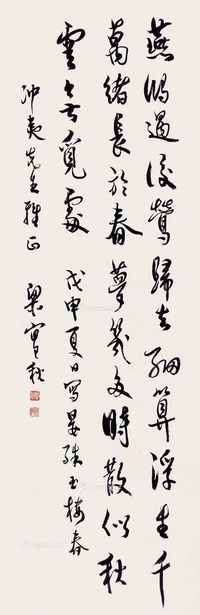 燕鴻過後鶯歸去細算浮生千
萬緒長於春夢幾多時散似秋
雲无覓處 戊申夏日寫晏殊玉樓春
沖夷先生雅正 梁實秋